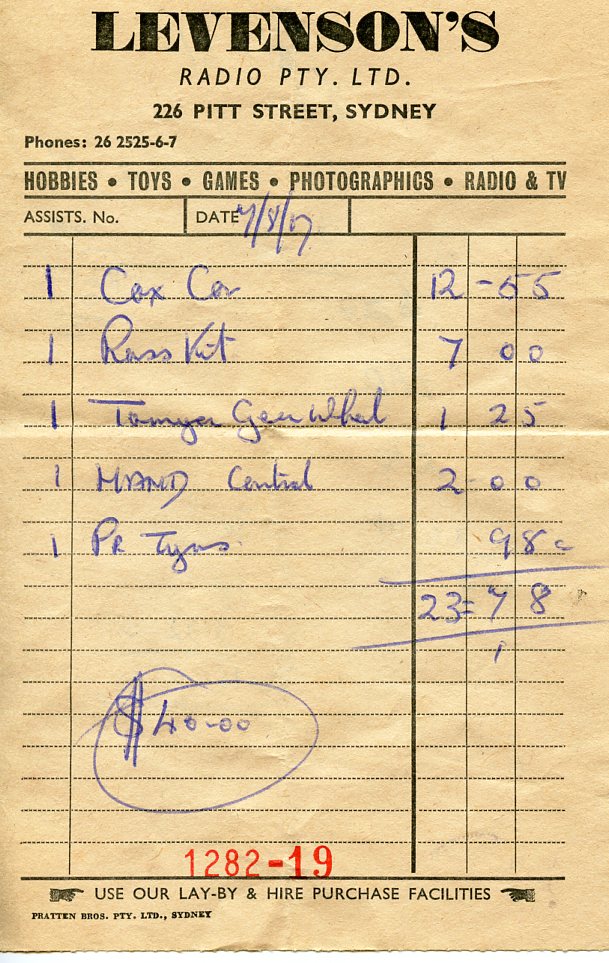 LEVENSON'S
RADIO PTY. LTD.
226 PITT STREET, SYDNEY
Phones: 26 2525-6-7
HOBBIES • TOYS • GAMES • PHOTOGRAPHICS • RADIO & TV
ASSISTS. No. DATE
1 Cox Car 12-55
1 Russ Kit 7 00
1 Gear Wheel 1 25
1 HAND Control 2-00
1 PR Tyres. 98c
23=78
$40-00
1282-19
USE OUR LAY-BY & HIRE PURCHASE FACILITIES
PRATTEN BROS. PTY. LTD., SYDNEY